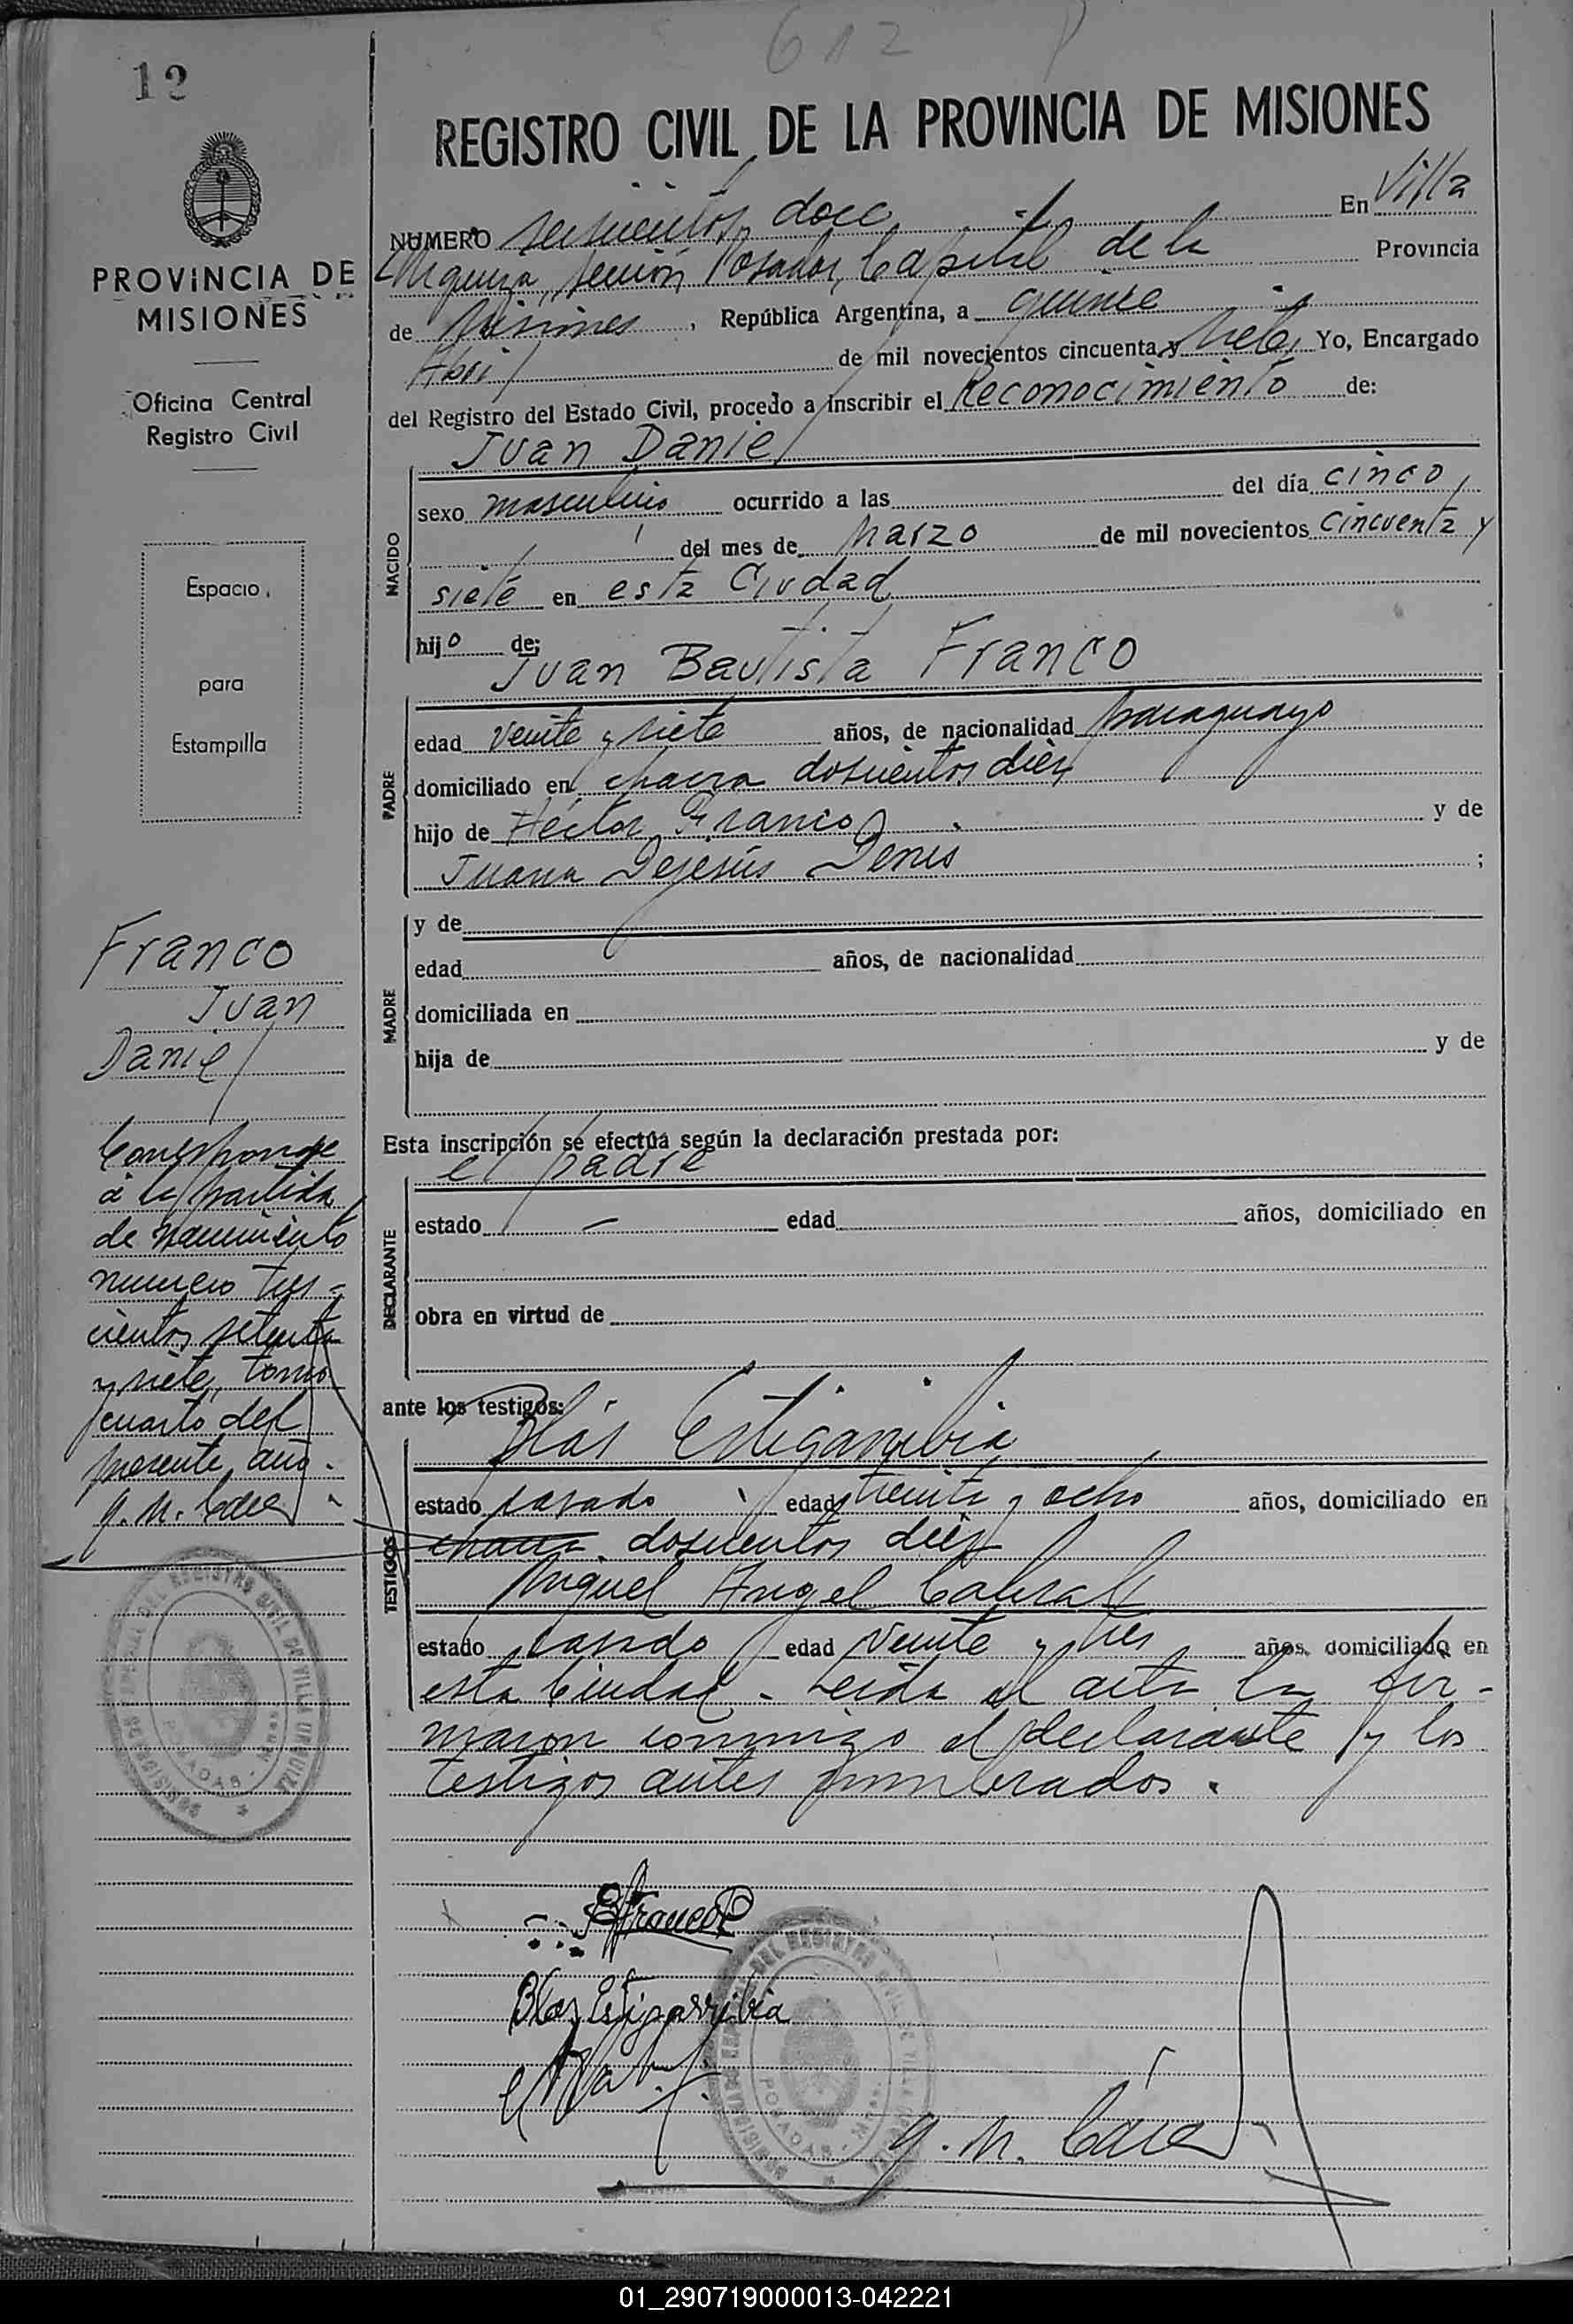 612
12
REGISTRO CIVIL DE LA PROVINCIA DE MISIONES
NUMERO seiscientos doce En Villa
Urquiza, sección Posadas, Capital de la Provincia
de Misiones, República Argentina, a quince
Abril de mil novecientos cincuenta y siete, Yo, Encargado
del Registro del Estado Civil, procedo a inscribir el Reconocimiento de:
Juan Daniel
NACIDO
sexo masculino ocurrido a las del día cinco
del mes de Marzo de mil novecientos cincuenta y
siete en esta Ciudad
hijo de;
Juan Bautista Franco
PADRE
edad veinte y siete años, de nacionalidad paraguayo
domiciliado en chacra doscientos diez
hijo de Héctor Franco y de
Juana Dejesús Denis ;
MADRE
y de
edad años, de nacionalidad
domiciliada en
hija de y de
Esta inscripción se efectúa según la declaración prestada por:
el padre
DECLARANTE
estado — edad años, domiciliado en
obra en virtud de
ante los testigos:
Blás Estigarribia
TESTIGOS
estado casado edad treinta y ocho años, domiciliado en
chacra doscientos diez
Miguel Angel Cabral
estado casado edad veinte y tres años, domiciliado en
esta Ciudad - Leída el acta la fir-
maron conmigo el declarante y los
testigos antes nombrados.
PROVINCIA DE
MISIONES
Oficina Central
Registro Civil
Espacio
para
Estampilla
Franco
Juan
Daniel
Corresponde
a la partida
de nacimiento
numero tres-
cientos setenta
y siete, tomo
cuarto del
presente año.
Blas Estigarribia
POSADAS - Mnes.
01_290719000013-042221